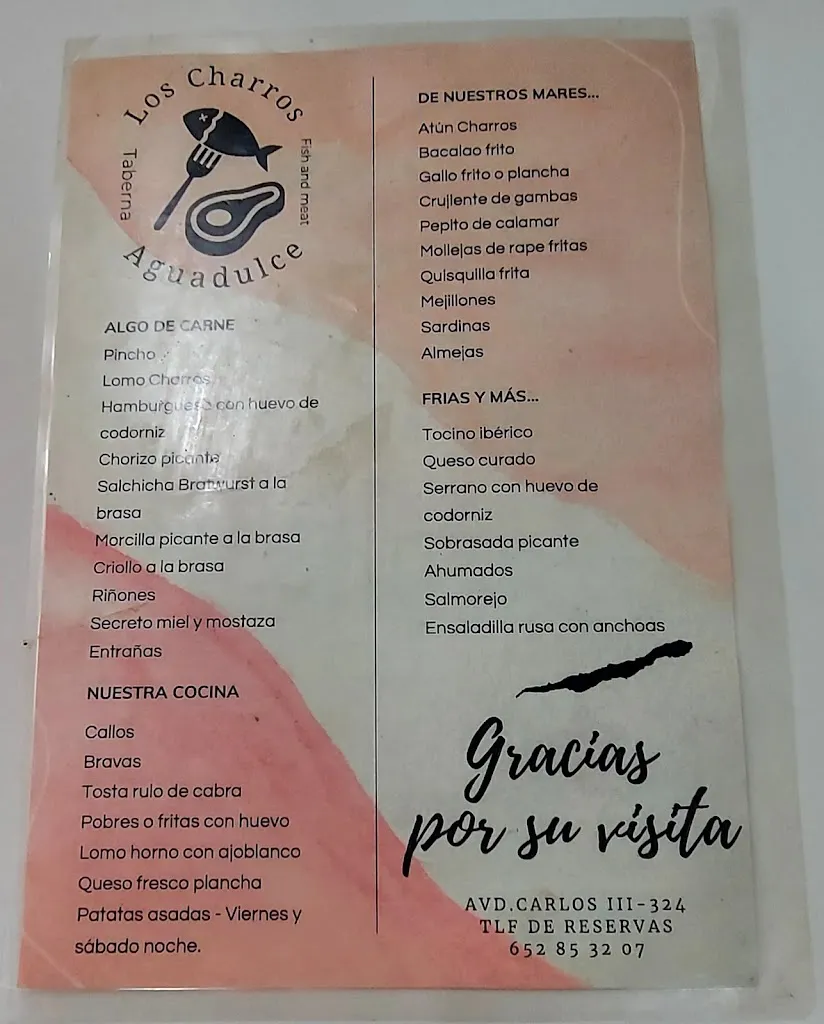 Los Charros
Taberna
Fish and meat
Aguadulce
ALGO DE CARNE
Pincho
Lomo Charros
Hamburguesa con huevo de
codorniz
Chorizo picante
Salchicha Bratwurst a la
brasa
Morcilla picante a la brasa
Criollo a la brasa
Riñones
Secreto miel y mostaza
Entrañas
NUESTRA COCINA
Callos
Bravas
Tosta rulo de cabra
Pobres o fritas con huevo
Lomo horno con ajoblanco
Queso fresco plancha
Patatas asadas - Viernes y
sábado noche.
DE NUESTROS MARES...
Atún Charros
Bacalao frito
Gallo frito o plancha
Crujiente de gambas
Pepito de calamar
Mollejas de rape fritas
Quisquilla frita
Mejillones
Sardinas
Almejas
FRIAS Y MÁS...
Tocino ibérico
Queso curado
Serrano con huevo de
codorniz
Sobrasada picante
Ahumados
Salmorejo
Ensaladilla rusa con anchoas
Gracias
por su visita
AVD.CARLOS III-324
TLF DE RESERVAS
652 85 32 07